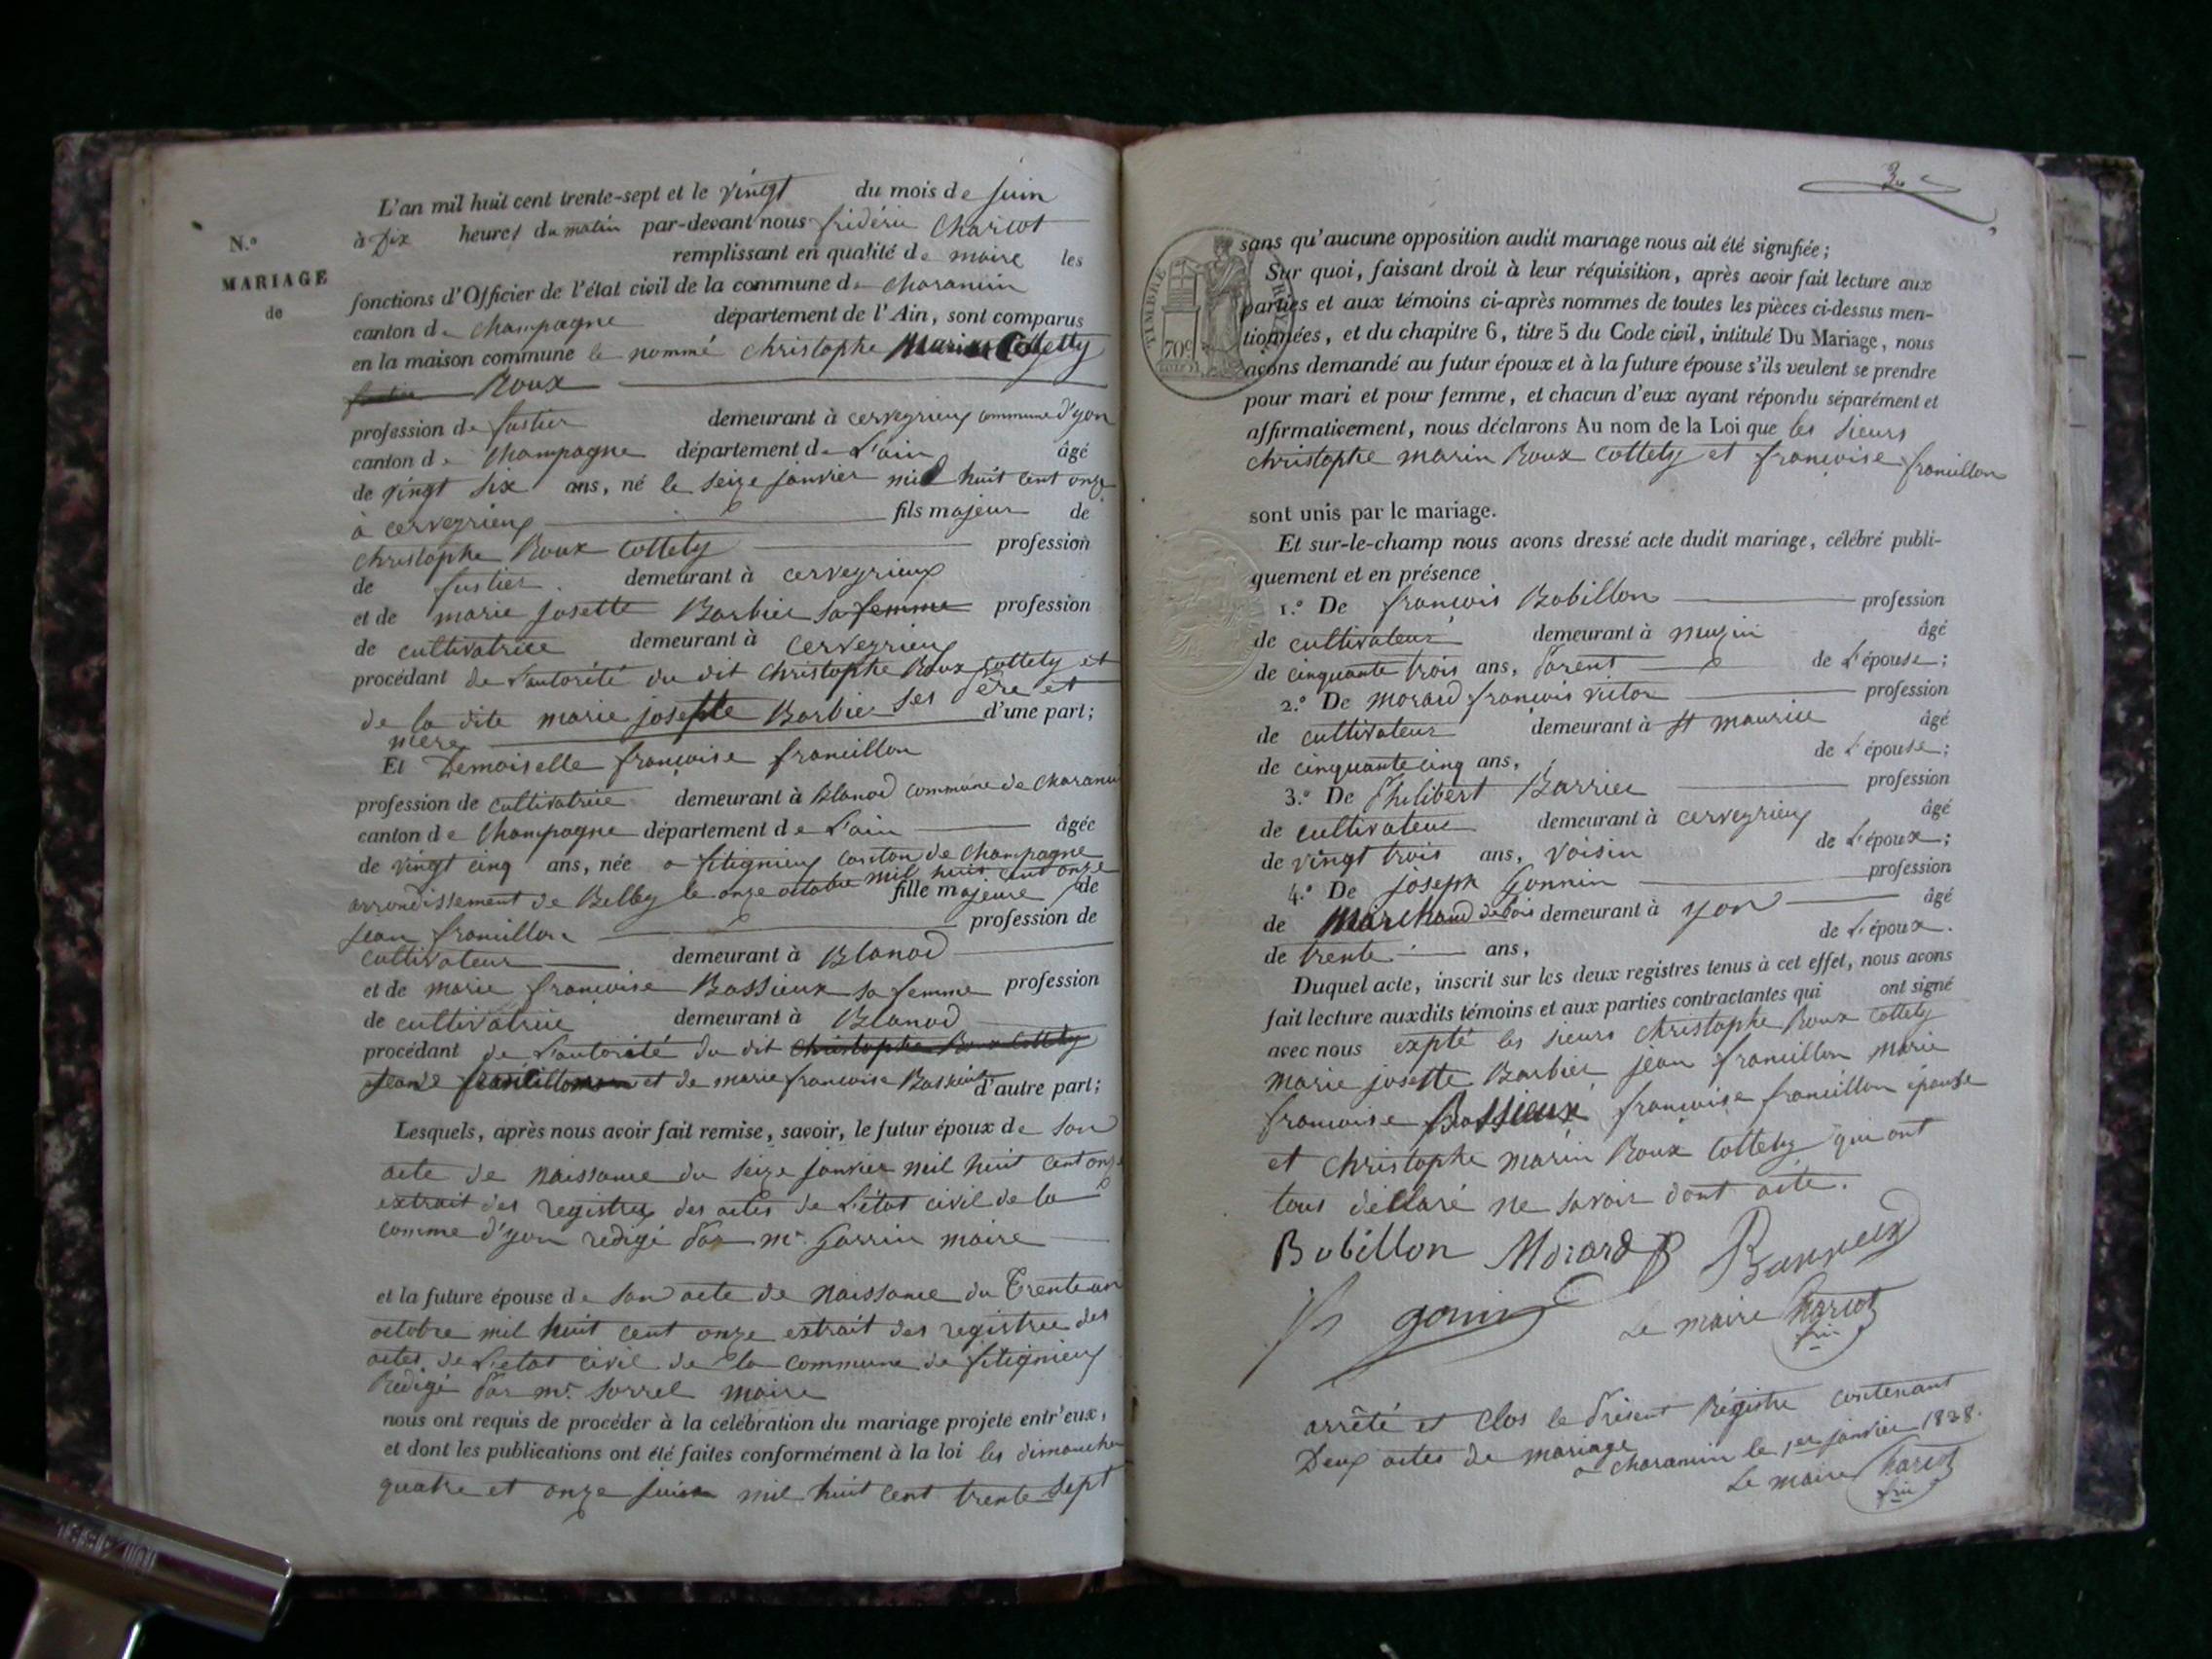 N.°
MARIAGE
de
L'an mil huit cent trente-sept et le vingt du mois de juin
à Dix heures du matin par-devant nous fridéric Charcot
remplissant en qualité de maire les
fonctions d'Officier de l'état civil de la commune de Charancin
canton de Champagne département de l'Ain, sont comparus
en la maison commune le nommé Christophe Marin Collety
Roux
profession de fustier demeurant à Cerveyrieux commune d'yon
canton de Champagne département de L'ain âgé
de vingt six ans, né le seize janvier mil huit cent onze
à cerveyrieux fils majeur de
Christophe Roux Collety profession
de fustier demeurant à cerveyrieux
et de marie josette Barbier sa femme profession
de cultivatrice demeurant à Cerveyrieux
procédant de L'autorité du dit Christophe Roux Collety et
de la dite marie josephte Barbier ses père et
mère d'une part;
Et Demoiselle françoise francillon
profession de cultivatrice demeurant à Blanod commune de Charancin
canton de Champagne département de L'ain âgée
de vingt cinq ans, née a fitignieux canton de Champagne
arrondissement de Belley le onze octobre mil huit cent onze
fille majeure de
jean francillon profession de
cultivateur demeurant à Blanod
et de marie françoise Bassieux sa femme profession
de cultivatrice demeurant à Blanod
procédant de L'autorité du dit Christophe Roux Collety
jean francillon et de marie françoise Bassieux d'autre part;
Lesquels, après nous avoir fait remise, savoir, le futur époux de son
acte de naissance du seize janvier mil huit cent onze
extrait des registres des actes de L'état civil de la
comme d'yon redigé par mr. maire
et la future épouse de son acte de naissance du Trente un
octobre mil huit cent onze extrait des registre des
actes de L'état civil de la commune de fitignieux
Redigé par mr. Sorrel maire
nous ont requis de procéder à la célébration du mariage projeté entr'eux,
et dont les publications ont été faites conformément à la loi les dimanche
quatre et onze juin mil huit cent trente sept
3
TIMBRE
70c
sans qu'aucune opposition audit mariage nous ait été signifiée;
Sur quoi, faisant droit à leur réquisition, après avoir fait lecture aux
parties et aux témoins ci-après nommes de toutes les pièces ci-dessus men-
tionnées, et du chapitre 6, titre 5 du Code civil, intitulé Du Mariage, nous
avons demandé au futur époux et à la future épouse s'ils veulent se prendre
pour mari et pour femme, et chacun d'eux ayant répondu séparément et
affirmativement, nous déclarons Au nom de la Loi que les sieurs
christophe marin Roux Collety et françoise francillon
sont unis par le mariage.
Et sur-le-champ nous avons dressé acte dudit mariage, célébré publi-
quement et en présence
1.° De françois Bobillon profession
de cultivateur demeurant à muzin âgé
de cinquante trois ans, parent de L'épouse;
2.° De morard françois victor profession
de cultivateur demeurant à st maurice âgé
de cinquante cinq ans, de L'épouse;
3.° De Philibert Barrier profession
de cultivateur demeurant à cerveyrieux âgé
de vingt trois ans, voisin de L'époux;
4.° De joseph Gonnin profession
de Marchand de bois demeurant à yon âgé
de trente ans, de L'époux.
Duquel acte, inscrit sur les deux registres tenus à cet effet, nous avons
fait lecture auxdits témoins et aux parties contractantes qui ont signé
avec nous expté les sieurs Christophe Roux Collety
marie josette Barbier jean francillon marie
françoise Bassieux françoise francillon épouse
et christophe marin Roux Collety qui ont
tous déclaré ne savoir dont acte.
Bobillon Morard
gonin Le maire Charcot
arrêté et clos le présent Régistre contenant
Deux actes de mariage
a charancin le 1er janvier 1838.
Le maire Charcot